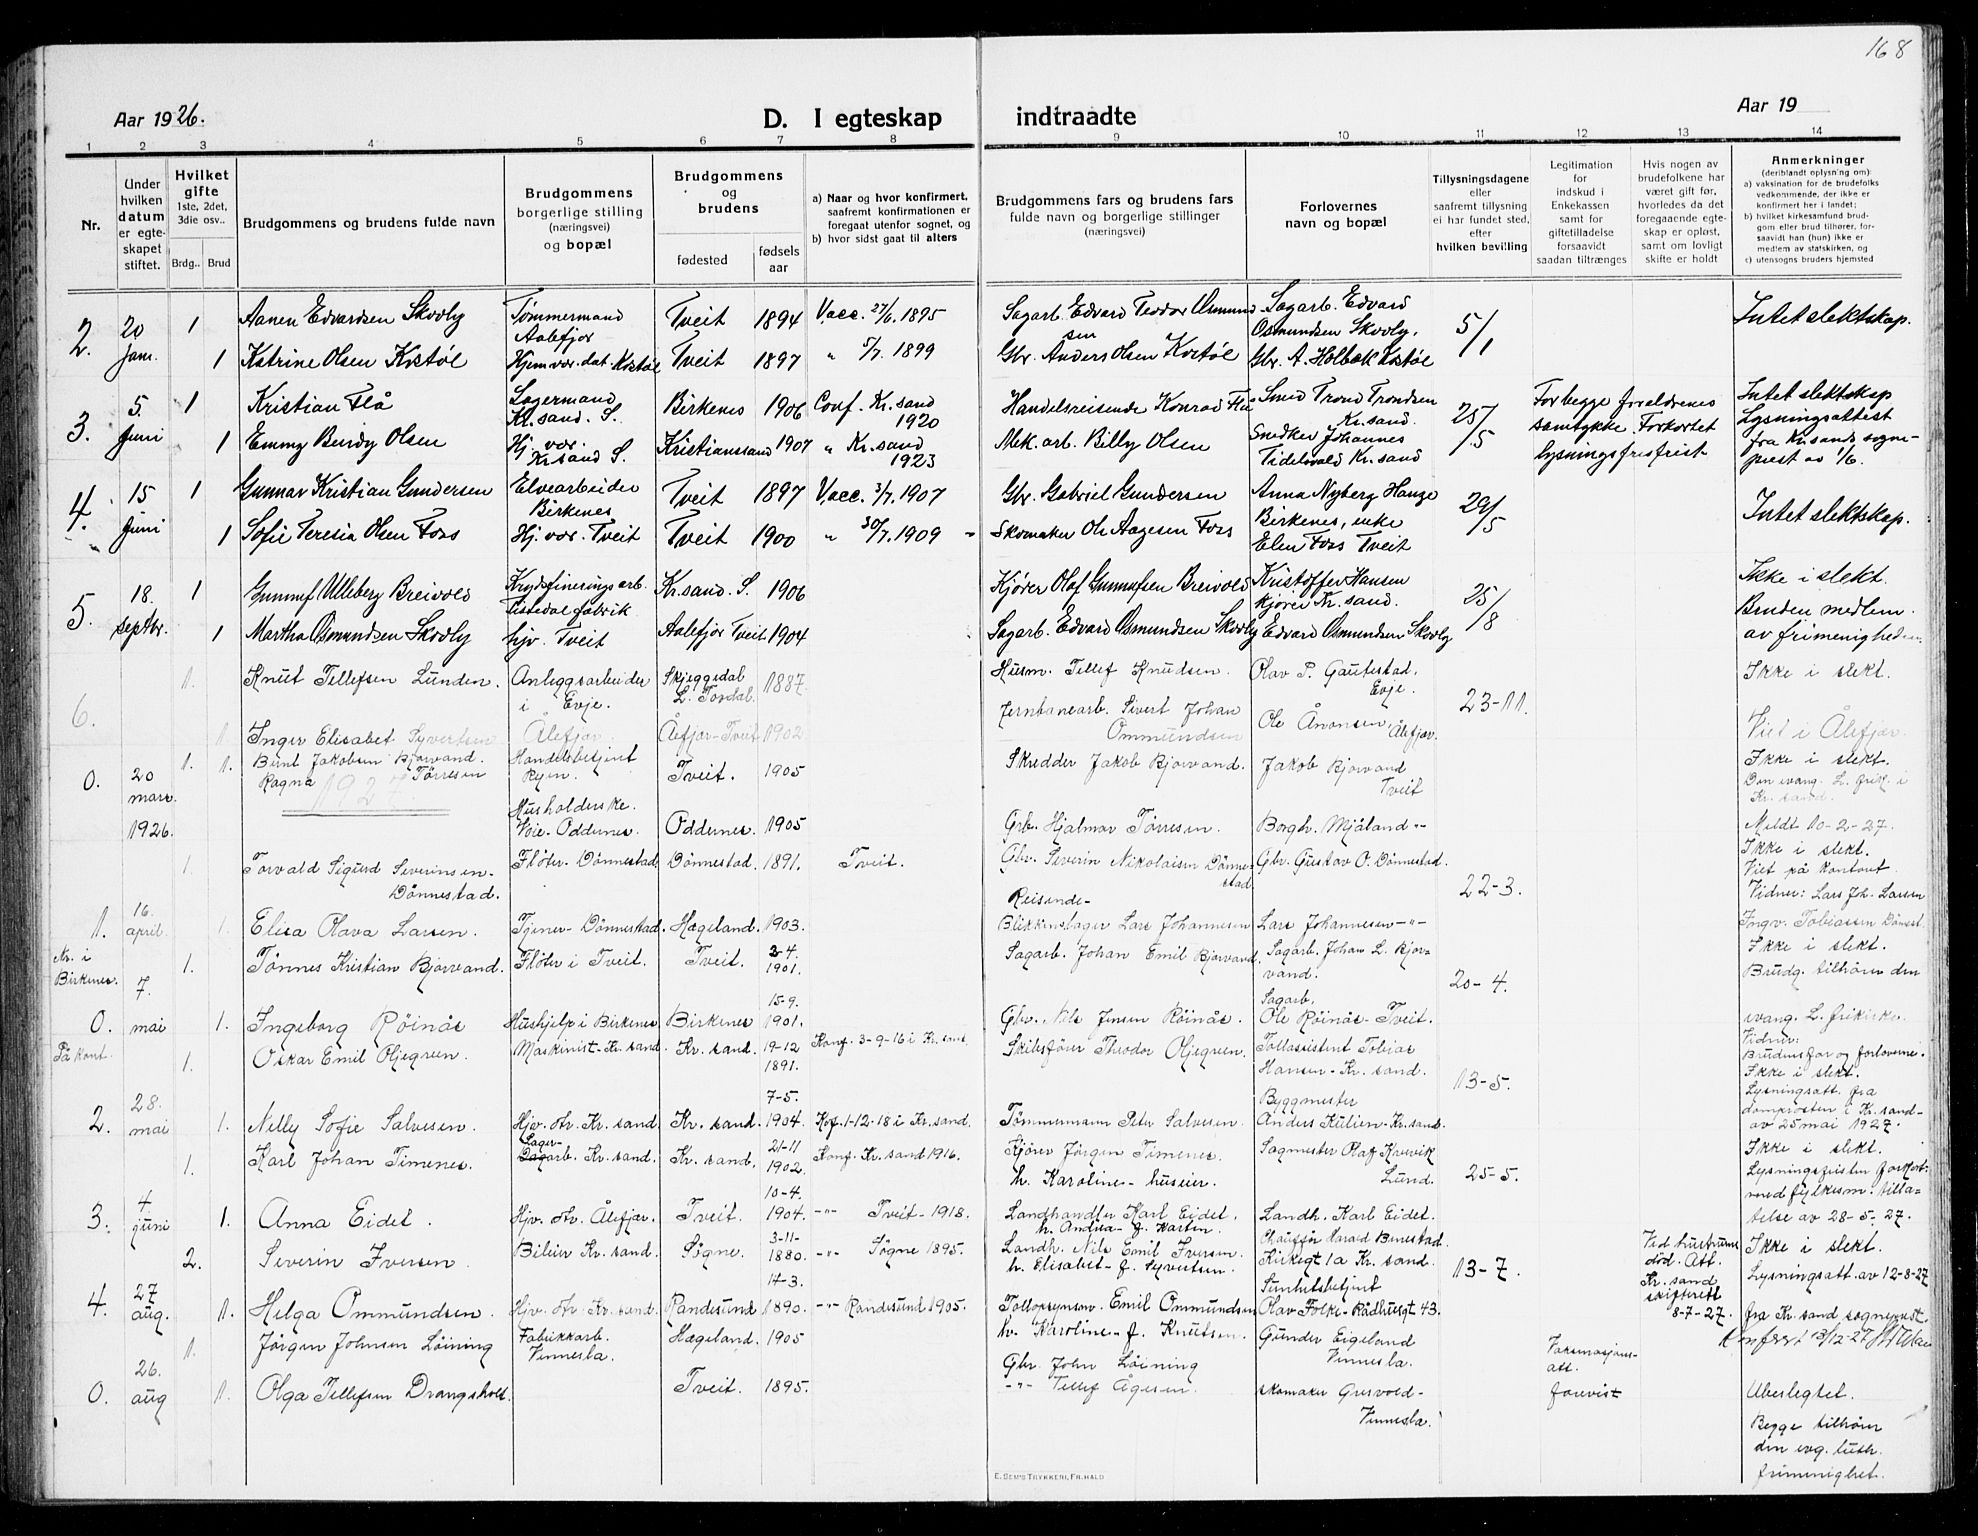 168
Aar 1926.
D. I egteskap indtraadte
Aar 19
1 2 3 4 5 6 7 8 9 10 11 12 13 14
Nr.
Under hvilken datum er egteskapet stiftet.
Hvilket gifte
1ste, 2det, 3die osv..
Brdg.. Brud
Brudgommens og brudens fulde navn
Brudgommens borgerlige stilling (næringsvei) og bopæl
Brudgommens og brudens
fødested
fødsels aar
a) Naar og hvor konfirmert, saafremt konfirmationen er foregaat utenfor sognet, og
b) hvor sidst gaat til alters
Brudgommens fars og brudens fars fulde navn og borgerlige stillinger (næringsvei)
Forlovernes navn og bopæl
Tillysningsdagene eller saafremt tillysning ei har fundet sted, efter hvilken bevilling
Legitimation for indskud i Enkekassen samt for giftetilladelse forsaavidt saadan tiltrænges
Hvis nogen av brudefolkene har været gift før, hvorledes da det foregaaende egteskap er opløst, samt om lovligt skifte er holdt
Anmerkninger
(deriblandt oplysning om):
a) vaksination for de brudefolks vedkommende, der ikke er konfirmert her i landet;
b) hvilket kirkesamfund brudgom eller brud tilhører, forsaavidt han (hun) ikke er medlem av statskirken, og
c) utensogns bruders hjemsted
2. 20 Jan. 1 Aanen Edvardsen Skovly Tømmermand Aalefjør Tveit 1894 Vacc. 27/6 1895 Sagarb. Edvard Teodor Osmundsen Sagarb. Edvard Osmundsen Skovly, 5/1 Intet slektskap.
1 Katrine Olsen Kostøl Hjemvær. dat. Kostøl Tveit 1897 " 5/7 1899 Gbr. Anders Olsen Kostøl Gbr. A. Holbæk Kostøl
3. 5. Juni 1 Kristian Flå Lagermand Kr.sand. S. Birkenes 1906 Conf. Kr.sand 1920 Handelsreisende Konrad Flå Smed Trond Trondsen Kr.sand. 25/5 For begge foreldrenes samtykke. Forkortet lysningsfrist Intet slektskap Lysningsattest fra Kr.sands sogneprest av 1/6.
1 Emmy Bendy Olsen Hj. vør. Kr.sand S. Kristianssand 1907 " Kr.sand 1923 Mek. arb. Billy Olsen Snedker Johannes Tidelsvald Kr.sand
4. 15 Juni 1 Gunnar Kristian Gundersen Elvearbeider Birkenes Tveit 1897 Vacc. 3/7 1907 Gbr. Gabriel Gundersen Anna Nyberg Hauge Birkenes, enke 29/5 Intet slektskap.
1 Sofie Teresia Olsen Foss Hj. vør. Tveit Tveit 1900 " 30/7 1909 Skomaker Ole Aagesen Foss Elen Foss Tveit
5. 18. septbr. 1 Gunnuf Ulleberg Breivold Krydsfineringsarb. Tistedal fabrik Kr.sand. S. 1906 Kjører Olaf Gunnufsen Breivold Kristoffer Hansen kjører Kr.sand. 25/8 Ikke i slekt. Bruden medlem av frimenigheden.
1 Martha Osmundsen Skovly hjv. Tveit Aalefjør Tveit 1904 Sagarb. Edvard Osmundsen Skovly Edvard Osmundsen Skovly
6. 1. Knut Tellefsen Lunden. Anleggsarbeider i Evje. Skjeggedal L. Tovdal. 1887. Husm. Tellef Knudsen. Olav P. Gautestad, Evje. 23-11. Ikke i slekt.
1. Inger Elisabet Syvertsen Ålefjær. Ålefjær-Tveit 1902 Jernbanearb. Sivert Johan Ommundsen Ole Ånonsen, Ålefjær. Viet i Ålefjær.
1927.
0. 20 mars 1926. 1. 1. Bent Jakobsen Bjorvand. Ragna Tørresen Handelsbetjent Ryen. Tveit. 1905 Skredder Jakob Bjorvand. Jakob Bjorvand Tveit Ikke i slekt. Den evang. L. frik. i Kr. sand.
Husholderske. Voie-Oddernes. Oddernes. 1905 Grb. Hjalmar Tørresen. Borgh. Mjåland -"- Meldt 10-2-27.
1. 16. april 1. Torvald Sigurd Severinsen-Dønnestad. Fløter-Dønnestad. Dønnestad. 1891. Tveit. Gbr. Severin Nikolaisen Dønnestad. Gbr. Gustav O. Dønnestad. 22-3. Ikke i slekt. Viet på kontoret Vidner: Lars Joh. Larsen
1. Elisa Olava Larsen. Tjener-Dønnestad. Hægeland. 1903. Reisende-Blikkenslager Lars Johannesen Lars Johannesen -"- Ingv. Tobiassen Dønnest.
Nr. i Birkenes. 0. 7. mai 1. Tønnes Kristian Bjorvand. Fløter i Tveit. Tveit. 2-4 1901. Sagarb. Johan Emil Bjorvand. Sagarb. Johan L. Bjorvand. 20-4. Ikke i slekt. Brudg. tilhører den evang. L. frikirke.
1. Ingeborg Røinås Hushjelp i Birkenes Birkenes 15-9. 1901. Gbr. Nils Jensen Røinås. Sagarb. Ole Røinås-Tveit. Vidner: Brudens far og forloverne.
På kont. 2. 28. mai 1. Oskar Emil Oljegreen. Maskinist-Kr.sand. Kr. sand. 19-12 1891. Konf. 3-9-16 i Kr. sand. Skibsfører Theodor Oljegreen. Tollassistent Tobias Hansen-Kr. sand. 13-5. Ikke i slekt. Lysningsatt. fra domprosten i Kr.sand- av 25 mai 1927.
1. Nelly Sofie Salvesen. Hjv. dtr. Kr. sand. Kr. sand. 7-5. 1904. Kof. 1-12-18 i Kr. sand. Tømmermann Peter Salvesen. Byggmester Anders Kulien-Kr.sand.
3. 4. juni 1. Karl Johan Timenes. Lagerarb. Kr. sand. Kr. sand. 21-11 1902. Konf. Kr. sand 1916. Kjører Jørgen Timenes. h. Karoline-huseier. Sagmester Olaf Kosevik Lund. 25-5. Ikke i slekt. Lysningsfristen forkort. med fylkesm. tillatelse av 28-5-27.
1. Anna Eidet. Hjv. dtr. Ålefjær. Tveit. 10-4. 1904. -"- Tveit-1918. Landhandler Karl Eidet. h. Andrea-f. Karten. Landh. Karl Eidet.
4. 27 aug. 2. Severin Iversen Bileier Kr. sand. Søgne. 3-11- 1880. -"- Søgne 1895. Landh. Nils Emil Iversen. h. Elisabet-f. Syvertsen. Chauffør Harald Benestad. Kirkegt 1a Kr. sand. 13-7. Ved hustruens død. Att. Kr. sand skifterett 8-7-27. Ikke i slekt. Lysningsatt. av 12-8-27 fra Kr. sand sogneprest.
1. Helga Ommundsen. Hjv. dtr. Kr. sand. Randesund 14-3. 1890. -"- Randesund 1905. Tollopsynsm. Emil Ommundsen h. Karoline-f. Knutsen. Olav Folke-Rådhusgt 43.
0. 26. aug 1. Jørgen Johnsen Løining Fabrikkarb. Vennesla. Hægeland. 1905 Gbr. John Løining Gunder Eigeland Vennesla. Vaksinasjons-att. forevist
1. Olga Tellefsen Drangsholt. Tveit. 1895. -"- Tellef Ågesen. skomaker Gresvold-Vennesla. Ubeslegtet. Begge tilhører den evg. luth. frimenighet.
E. Sem's Trykkeri, Fr.hald